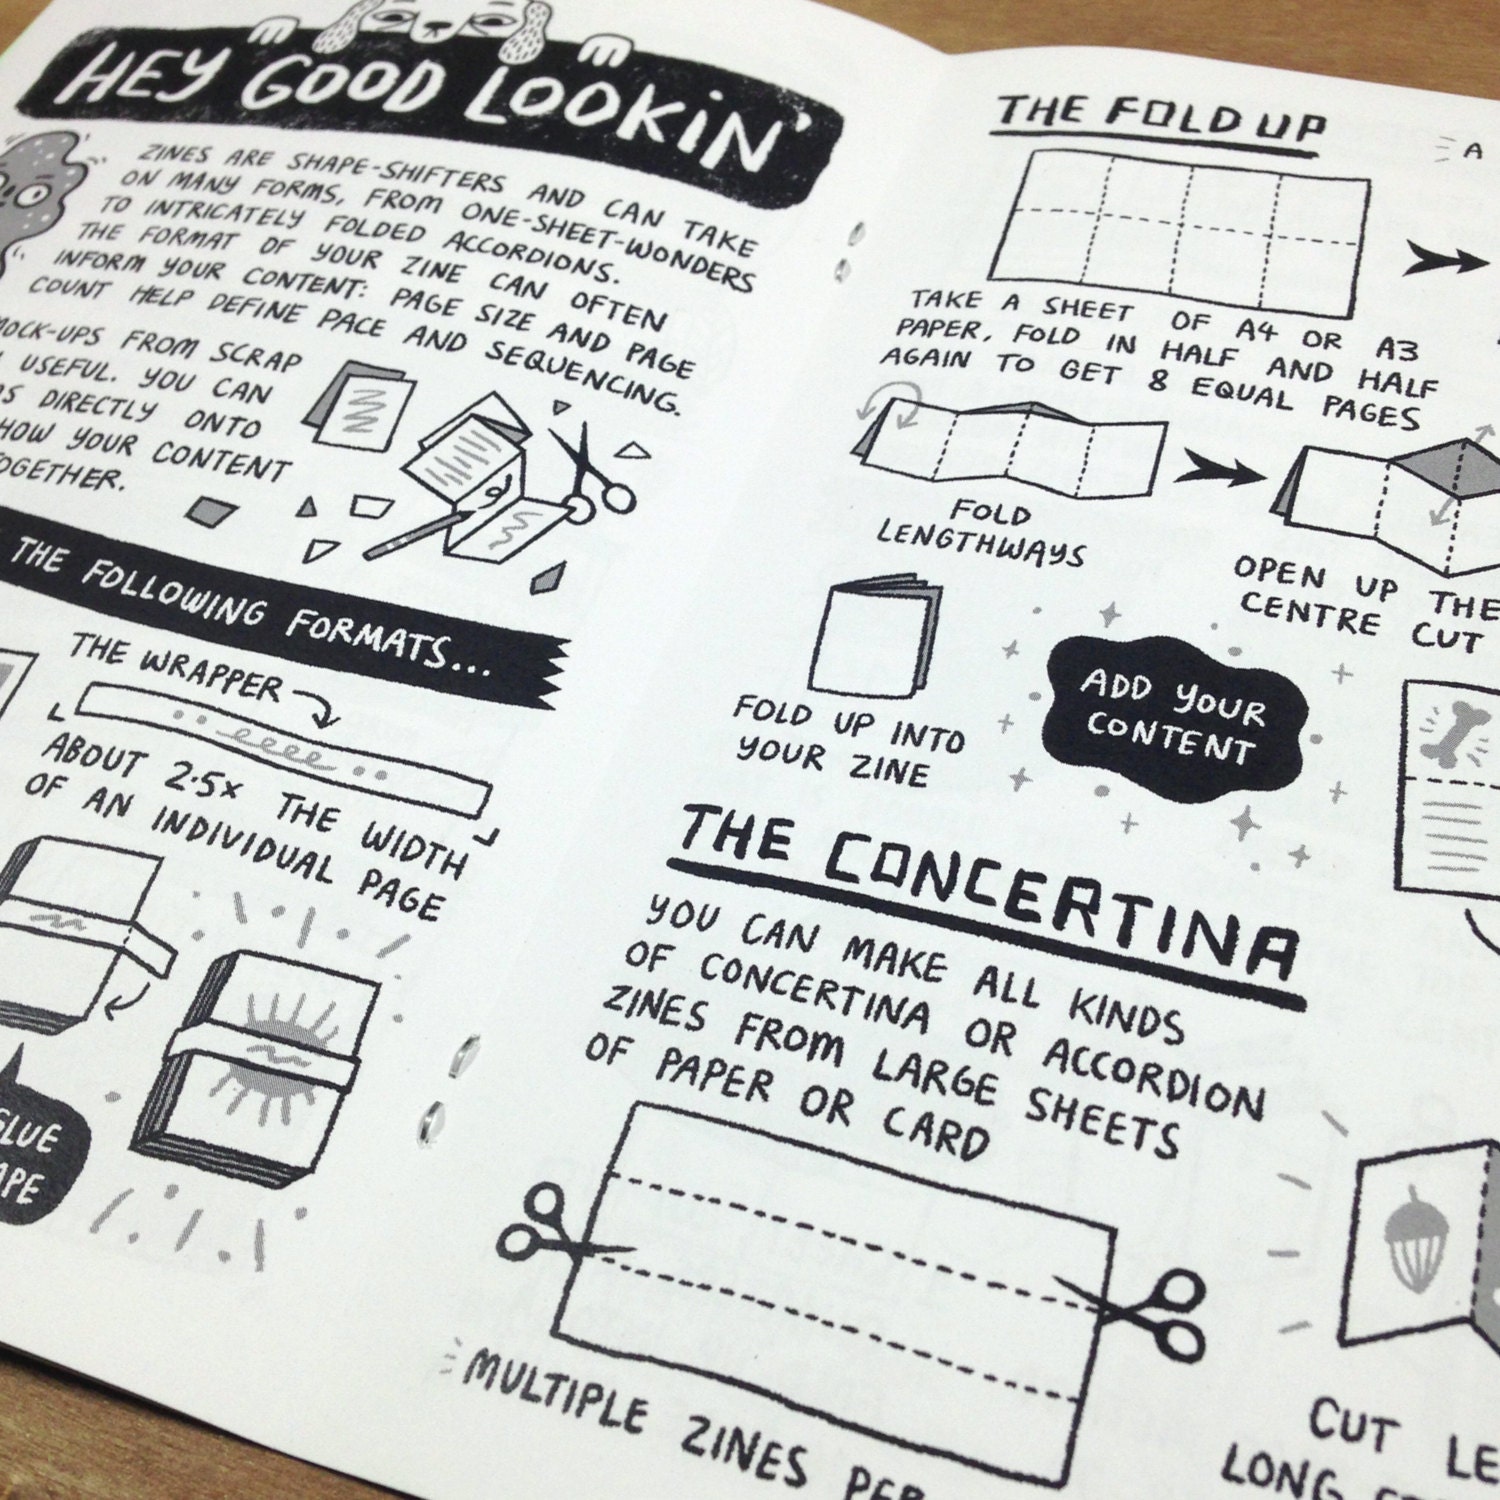 HEY GOOD LOOKIN'
ZINES ARE SHAPE-SHIFTERS AND CAN TAKE
ON MANY FORMS, FROM ONE-SHEET-WONDERS
TO INTRICATELY FOLDED ACCORDIONS.
THE FORMAT OF YOUR ZINE CAN OFTEN
INFORM YOUR CONTENT: PAGE SIZE AND PAGE
COUNT HELP DEFINE PACE AND SEQUENCING.
MOCK-UPS FROM SCRAP
USEFUL. YOU CAN
DIRECTLY ONTO
HOW YOUR CONTENT
TOGETHER.
THE FOLLOWING FORMATS...
THE WRAPPER
ABOUT 2.5x THE WIDTH
OF AN INDIVIDUAL PAGE
GLUE
THE FOLD UP
A
TAKE A SHEET OF A4 OR A3
PAPER. FOLD IN HALF AND HALF
AGAIN TO GET 8 EQUAL PAGES
FOLD
LENGTHWAYS
OPEN UP THE
CENTRE CUT
FOLD UP INTO
YOUR ZINE
ADD YOUR
CONTENT
THE CONCERTINA
YOU CAN MAKE ALL KINDS
OF CONCERTINA OR ACCORDION
ZINES FROM LARGE SHEETS
OF PAPER OR CARD
MULTIPLE ZINES PER
CUT
LONG